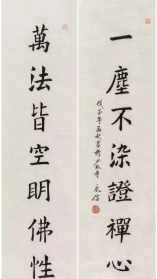 一塵不染證禪心
萬法皆空明佛性